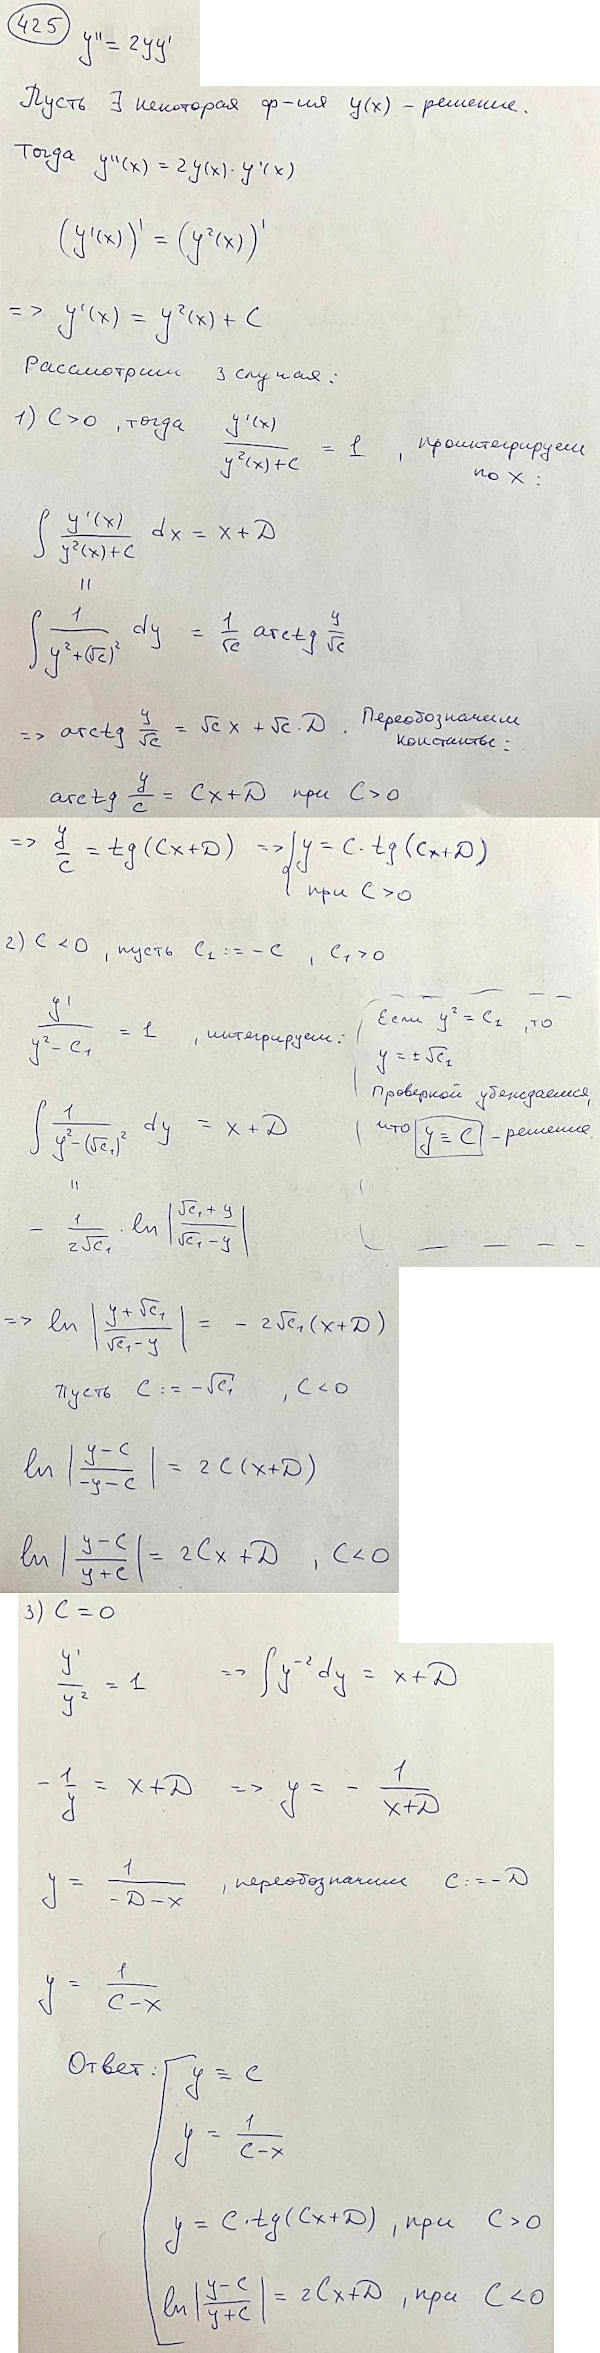 425 y'' = 2yy'
Пусть ∃ некоторая ф-ия y(x) – решение.
Тогда y''(x) = 2y(x)·y'(x)
(y'(x))' = (y²(x))'
=> y'(x) = y²(x) + C
Рассмотрим 3 случая:
1) C>0, тогда y'(x)/(y²(x)+C) = 1, проинтегрируем по x:
∫ y'(x)/(y²(x)+C) dx = x + D
=
∫ 1/(y²+(√C)²) dy = 1/√C arctg y/√C
=> arctg y/√C = √C x + √C·D. Переобозначим константы:
arctg y/C = Cx+D при C>0
=> y/C = tg(Cx+D) => { y = C·tg(Cx+D)
при C>0
2) C<0, пусть C₁ := -C, C₁>0
y'/(y²-C₁) = 1, интегрируем:
Если y² = C₁, то
y = ±√C₁
Проверкой убеждаемся,
что y ≡ C – решение.
∫ 1/(y²-(√C₁)²) dy = x + D
=
- 1/(2√C₁) · ln |(√C₁+y)/(√C₁-y)|
=> ln |(y+√C₁)/(√C₁-y)| = - 2√C₁(x+D)
Пусть C := -√C₁, C<0
ln |(y-C)/(-y-C)| = 2C(x+D)
ln |(y-C)/(y+C)| = 2Cx + D, C<0
3) C = 0
y'/y² = 1 => ∫ y⁻² dy = x+D
- 1/y = x+D => y = - 1/(x+D)
y = 1/(-D-x), переобозначим C := -D
y = 1/(C-x)
Ответ: [ y ≡ C
y = 1/(C-x)
y = C·tg(Cx+D), при C>0
ln |(y-C)/(y+C)| = 2Cx+D, при C<0